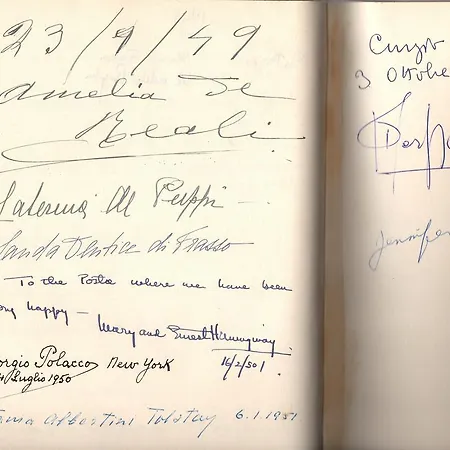 23/9/49
Amelia De
Reali
Caterina de
Jolanda Dentice di Frasso
To the Posta where we have been
very happy —
Mary and Ernest Hemingway
16/2/50
Giorgio Polacco New York
Luglio 1950
Albertini Tolstoy 6.1.1951
3 Ottobre
Jennifer